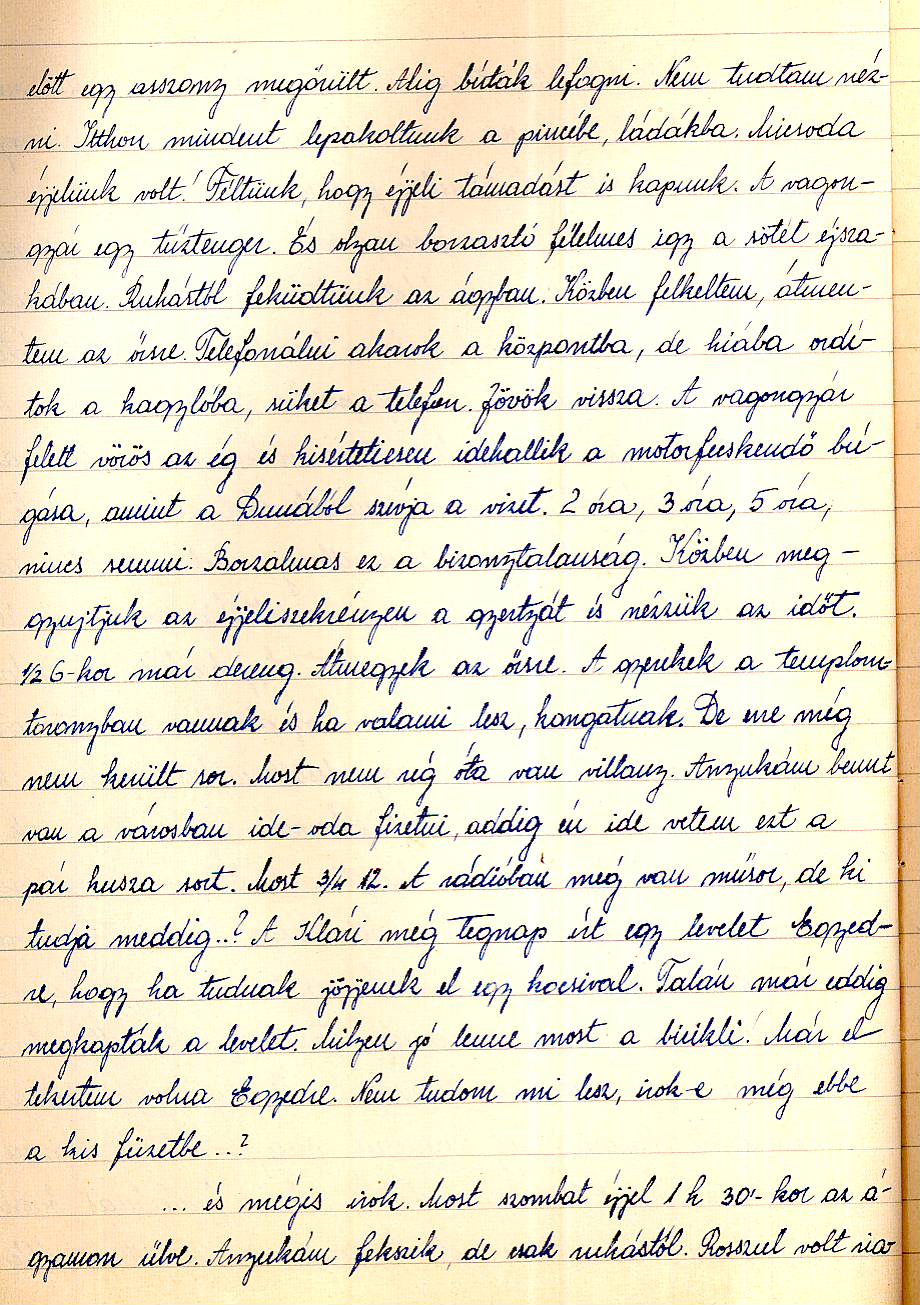 előtt egy asszony megőrült. Alig bírták lefogni. Nem tudtam néz-
ni. Itthon mindent lepakoltunk a pincébe, ládákba. Micsoda
éjjelünk volt! Féltünk, hogy éjjeli támadást is kapunk. A vagon-
gyár egy tűztenger. És olyan borzasztó félelmes így a sötét éjsza-
kában. Ruhástól feküdtünk az ágyban. Közben felkeltem, átmen-
tem az őrsre. Telefonálni akarok a központba, de hiába ordí-
tok a kagylóba, süket a telefon. Jövök vissza. A vagongyár
felett vörös az ég és kisértetiesen idehallik a motorfecskendő bú-
gása, amint a Dunából szívja a vizet. 2 óra, 3 óra, 5 óra,
nincs semmi. Borzalmas ez a bizonytalanság. Közben meg-
gyujtjuk az éjjeliszekrényen a gyertyát és nézzük az időt.
1/2 6-kor már dereng. Átmegyek az őrsre. A gyerekek a templom-
toronyban vannak és ha valami lesz, kongatnak. De erre még
nem került sor. Most nem rég óta van villany. Anyukám bennt
van a városban ide-oda fizetni, addig én ide vetem ezt a
pár kusza sort. Most 3/4 12. A rádióban még van műsor, de ki
tudja meddig..? A Klári még tegnap írt egy levelet Egyed-
re, hogy ha tudnak jöjjenek el egy kocsival. Talán már eddig
megkapták a levelet. Milyen jó lenne most a bicikli! Már el
tekertem volna Egyedre. Nem tudom mi lesz, irok-e még ebbe
a kis füzetbe..?
... és mégis irok. Most szombat éjjel 1 h 30'-kor az á-
gyamon ülve. Anyukám fekszik, de csak ruhástól. Rosszul volt